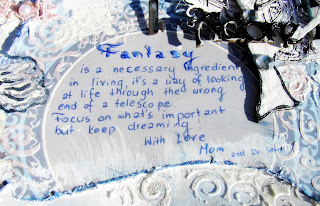 Fantasy
is a necessary ingredient
in living, it's a way of looking
at life through the wrong
end of a telescope.
Focus on what's important
but keep dreaming
With Love
Mom and Dr. Seuss